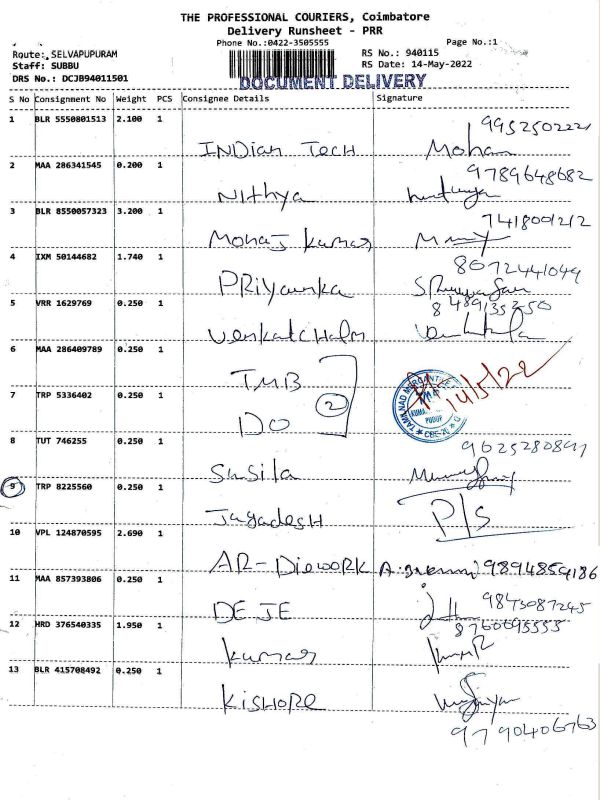 THE PROFESSIONAL COURIERS, Coimbatore
Delivery Runsheet - PRR
Phone No.:0422-3505555 Page No.:1
Route: SELVAPUPURAM RS No.: 940115
Staff: SUBBU RS Date: 14-May-2022
DRS No.: DCJB94011501 DOCUMENT DELIVERY
S No Consignment No Weight PCS Consignee Details Signature
1 BLR 5550801513 2.100 1
INDian TECH Mohan 9952502221
2 MAA 286341545 0.200 1
Nithya 9789648682
3 BLR 8550057323 3.200 1
Monaj kumar 7418001212
4 IXM 50144682 1.740 1
PRiyanka 8072441049
5 VRR 1629769 0.250 1
VenkatcHalm 8489135250
6 MAA 286409789 0.250 1
TMB
7 TRP 5336402 0.250 1
DO 2 14/5/22
8 TUT 746255 0.250 1
Susila
9 TRP 8225560 0.250 1
Jayadesh P/S
10 VPL 124870595 2.690 1
AR-Diework 9894859186
11 MAA 857393806 0.250 1
DEJE 9843087245
12 HRD 376540335 1.950 1
kumar 8760695555
13 BLR 415708492 0.250 1
KisHORe
9790406763